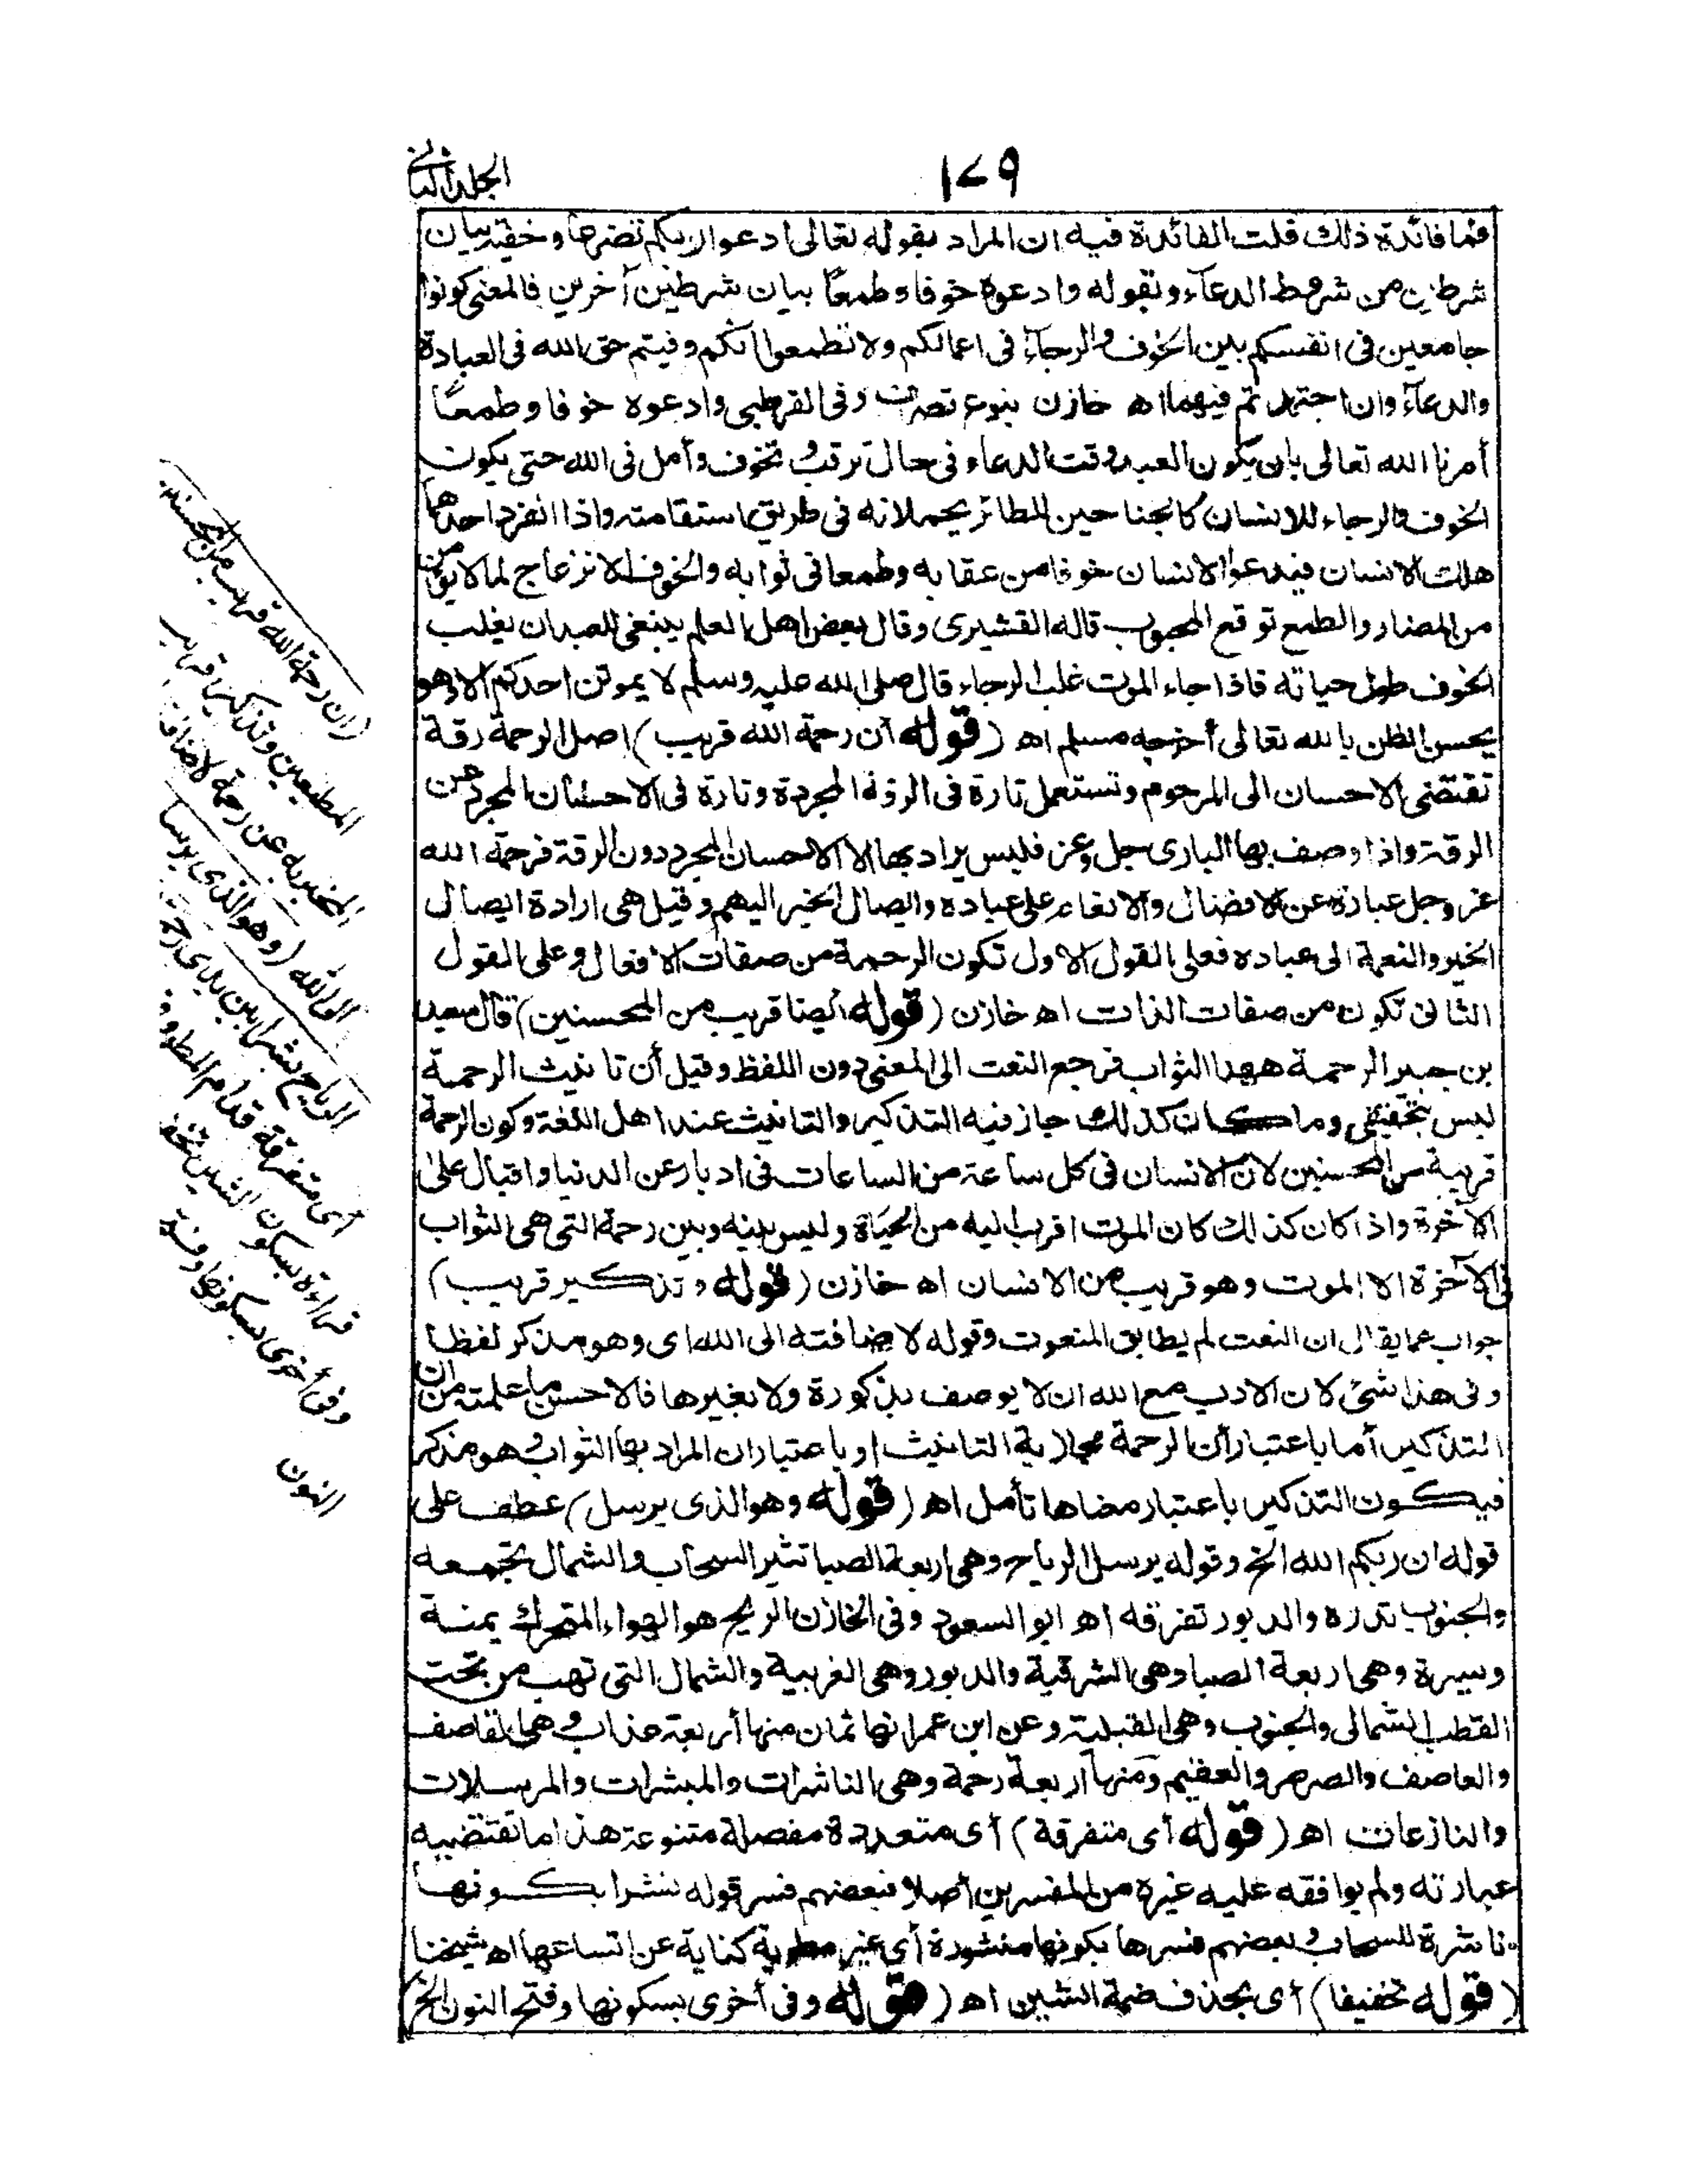 ١٤٩
الجلد الثاني
فما فائدة ذلك قلت الفائدة فيه ان المراد بقوله تعالى ادعوا ربكم تضرعا وخفية بيان
شرطين من شروط الدعآء وبقوله وادعوه خوفا وطمعًا بيان شرطين آخرين فالمعنى كونوا
جامعين فى انفسكم بين الخوف والرجآء فى اعمالكم ولا تطمعوا انكم وفيتم حق الله فى العبادة
والدعآء وان اجتهدتم فيهما اه خازن بنوع تصرف وفى القرطبى وادعوه خوفا وطمعًا
أمرنا الله تعالى بان يكون العبد وقت الدعاء فى حال ترقب وتخوف وأمل فى الله حتى يكون
الخوف والرجاء للانسان كالجناحين للطائر يحملانه فى طريق استقامته واذا انفرد احدهما
هلك الانسان فيدعوا الانسان خوفا من عقابه وطمعا فى ثوابه والخوف الانزعاج لما لا يؤمن
من المضار والطمع توقع المحبوب قاله القشيرى وقال بعض اهل العلم ينبغى للعبد ان يغلب
الخوف طول حياته فاذا جاء الموت غلب الرجاء قال صلى الله عليه وسلم لا يموتن احدكم الا وهو
يحسن الظن بالله تعالى أخرجه مسلم اه (قوله ان رحمة الله قريب) اصل الرحمة رقة
تقتضى الاحسان الى المرحوم وتستعمل تارة فى الرقة المجردة وتارة فى الاحسان المجرد عن
الرقة واذا وصف بها البارى جل وعز فليس يراد بها الا الاحسان المجرد دون الرقة فرحمة الله
عز وجل عبارة عن الافضال والانعام على عباده وايصال الخير اليهم وقيل هى ارادة ايصال
الخير والنعمة الى عباده فعلى القول الاول تكون الرحمة من صفات الافعال وعلى القول
الثانى تكون من صفات الذات اه خازن (قوله ايضا قريب من المحسنين) قال سعيد
بن جبير الرحمة ههنا الثواب فرجع النعت الى المعنى دون اللفظ وقيل أن تانيث الرحمة
ليس بحقيقى وما كان كذلك جاز فيه التذكير والتانيث عند اهل اللغة وكون الرحمة
قريبة من المحسنين لان الانسان فى كل ساعة من الساعات فى ادبار عن الدنيا واقبال على
الآخرة واذا كان كذلك كان الموت اقرب اليه من الحيَاة وليس بينه وبين رحمة التى هى الثواب
فى الآخرة الا الموت وهو قريب من الانسان اه خازن (قوله وتذكير قريب)
جواب عما يقال ان النعت لم يطابق المنعوت وقوله لاضافته الى الله اى وهو مذكر لفظا
وفى هذا شئ لان الادب مع الله ان لا يوصف بذكورة ولا بغيرها فالاحسن ما علمته من ان
التذكير أما باعتبار أن الرحمة مجازية التانيث او باعتبار ان المراد بها الثواب وهو مذكر
فيكون التذكير باعتبار معناها تأمل اه (قوله وهو الذى يرسل) عطف على
قوله ان ربكم الله الخ وقوله يرسل الرياح وهى اربعة الصبا تثير السحاب والشمال تجمعه
والجنوب تدره والدبور تفرقه اه ابو السعود وفى الخازن الريح هو الهواء المتحرك يمنة
ويسرة وهى اربعة الصبا وهى الشرقية والدبور وهى الغربية والشمال التى تهب من تحت
القطب الشمالى والجنوب وهى القبلية وعن ابن عمر انها ثمان منها أربعة عذاب وهى القاصف
والعاصف والصرصر والعقيم ومنها أربعة رحمة وهى الناشرات والمبشرات والمرسلات
والنازعات اه (قوله أى متفرقة) أى متعددة مفصلة متنوعة هذا ما تقتضيه
عبارته ولم يوافقه عليه غيره من المفسرين أصلا فبعضهم فسر قوله نشرا بكونها
ناشرة للسحاب وبعضهم فسرها بكونها منشورة أى غير مطوية كناية عن اتساعها اه شيخنا
(قوله تخفيفا) أى بحذف ضمة الشين اه (قوله وفى أخرى بسكونها وفتح النون الخ)
(ان رحمة الله قريب من المحسنين
المطيعين وتذكير قريب
المخبر به عن رحمة لاضافتها
الى الله (وهو الذى يرسل
الرياح نشرا بين يدى رحمته
أى متفرقة قدام المطر وفى
قراءة بسكون الشين تخفيفا
وفى أخرى بسكونها وفتح
النون